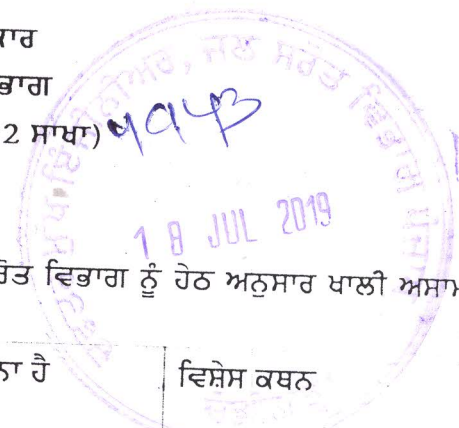 ਕਾਰ
ਭਾਗ
2 ਸਾਖਾ)
ਜਲ ਸਰੋਤ ਵਿਭਾਗ
18 JUL 2019
ਰੋਤ ਵਿਭਾਗ ਨੂੰ ਹੇਠ ਅਨੁਸਾਰ ਖਾਲੀ ਅਸਾਮ
ਨਾ ਹੈ ਵਿਸ਼ੇਸ ਕਥਨ